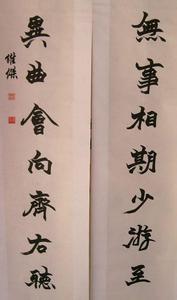 無事相期少游至
異曲會向齊右聽